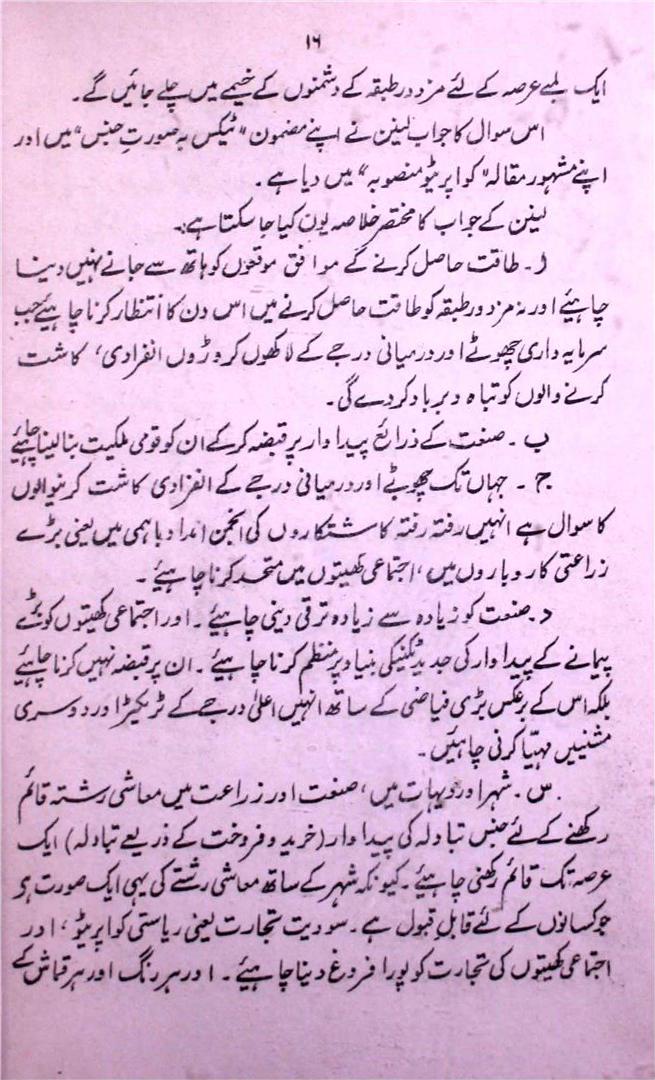 ۱۶
ایک لمبے عرصہ کے لئے مزدور طبقہ کے دشمنوں کے خیمے میں چلے جائیں گے۔
اس سوال کا جواب لینن نے اپنے مضمون "ٹیکس بہ صورتِ جنس" میں اور
اپنے مشہور مقالہ "کواپریٹو منصوبہ" میں دیا ہے۔
لینن کے جواب کا مختصر خلاصہ یوں کیا جا سکتا ہے:۔
ا۔ طاقت حاصل کرنے کے موافق موقعوں کو ہاتھ سے جانے نہیں دینا
چاہیئے اور نہ مزدور طبقہ کو طاقت حاصل کرنے میں اس دن کا انتظار کرنا چاہیئے جب
سرمایہ داری چھوٹے اور درمیانی درجے کے لاکھوں کروڑوں انفرادی، کاشت
کرنے والوں کو تباہ و برباد کر دے گی۔
ب۔ صنعت کے ذرائع پیداوار پر قبضہ کر کے ان کو قومی ملکیت بنا لینا چاہیئے
ج۔ جہاں تک چھوٹے اور درمیانی درجے کے انفرادی کاشت کرنیوالوں
کا سوال ہے انہیں رفتہ رفتہ کاشتکاروں کی انجمن امداد باہمی میں یعنی بڑے
زراعتی کاروباروں میں، اجتماعی کھیتوں میں متحد کرنا چاہیئے۔
د۔ صنعت کو زیادہ سے زیادہ ترقی دینی چاہیئے۔ اور اجتماعی کھیتوں کو بڑے
پیمانے کے پیداوار کی جدید ٹکنیکی بنیاد پر منظم کرنا چاہیئے۔ ان پر قبضہ نہیں کرنا چاہیئے
بلکہ اس کے برعکس بڑی فیاضی کے ساتھ انہیں اعلیٰ درجے کے ٹریکٹر اور دوسری
مشنیں مہیّا کرنی چاہئیں۔
س۔ شہر اور دیہات میں، صنعت اور زراعت میں معاشی رشتہ قائم
رکھنے کے لئے جنس تبادلہ کی پیداوار (خرید و فروخت کے ذریعے تبادلہ) ایک
عرصہ تک قائم رکھنی چاہیئے۔ کیونکہ شہر کے ساتھ معاشی رشتے کی یہی ایک صورت ہو
جو کسانوں کے لئے قابلِ قبول ہے۔ سوویت تجارت یعنی ریاستی کواپریٹو، اور
اجتماعی کھیتوں کی تجارت کو پورا فروغ دینا چاہیئے۔ اور ہر رنگ اور ہر قماش کے